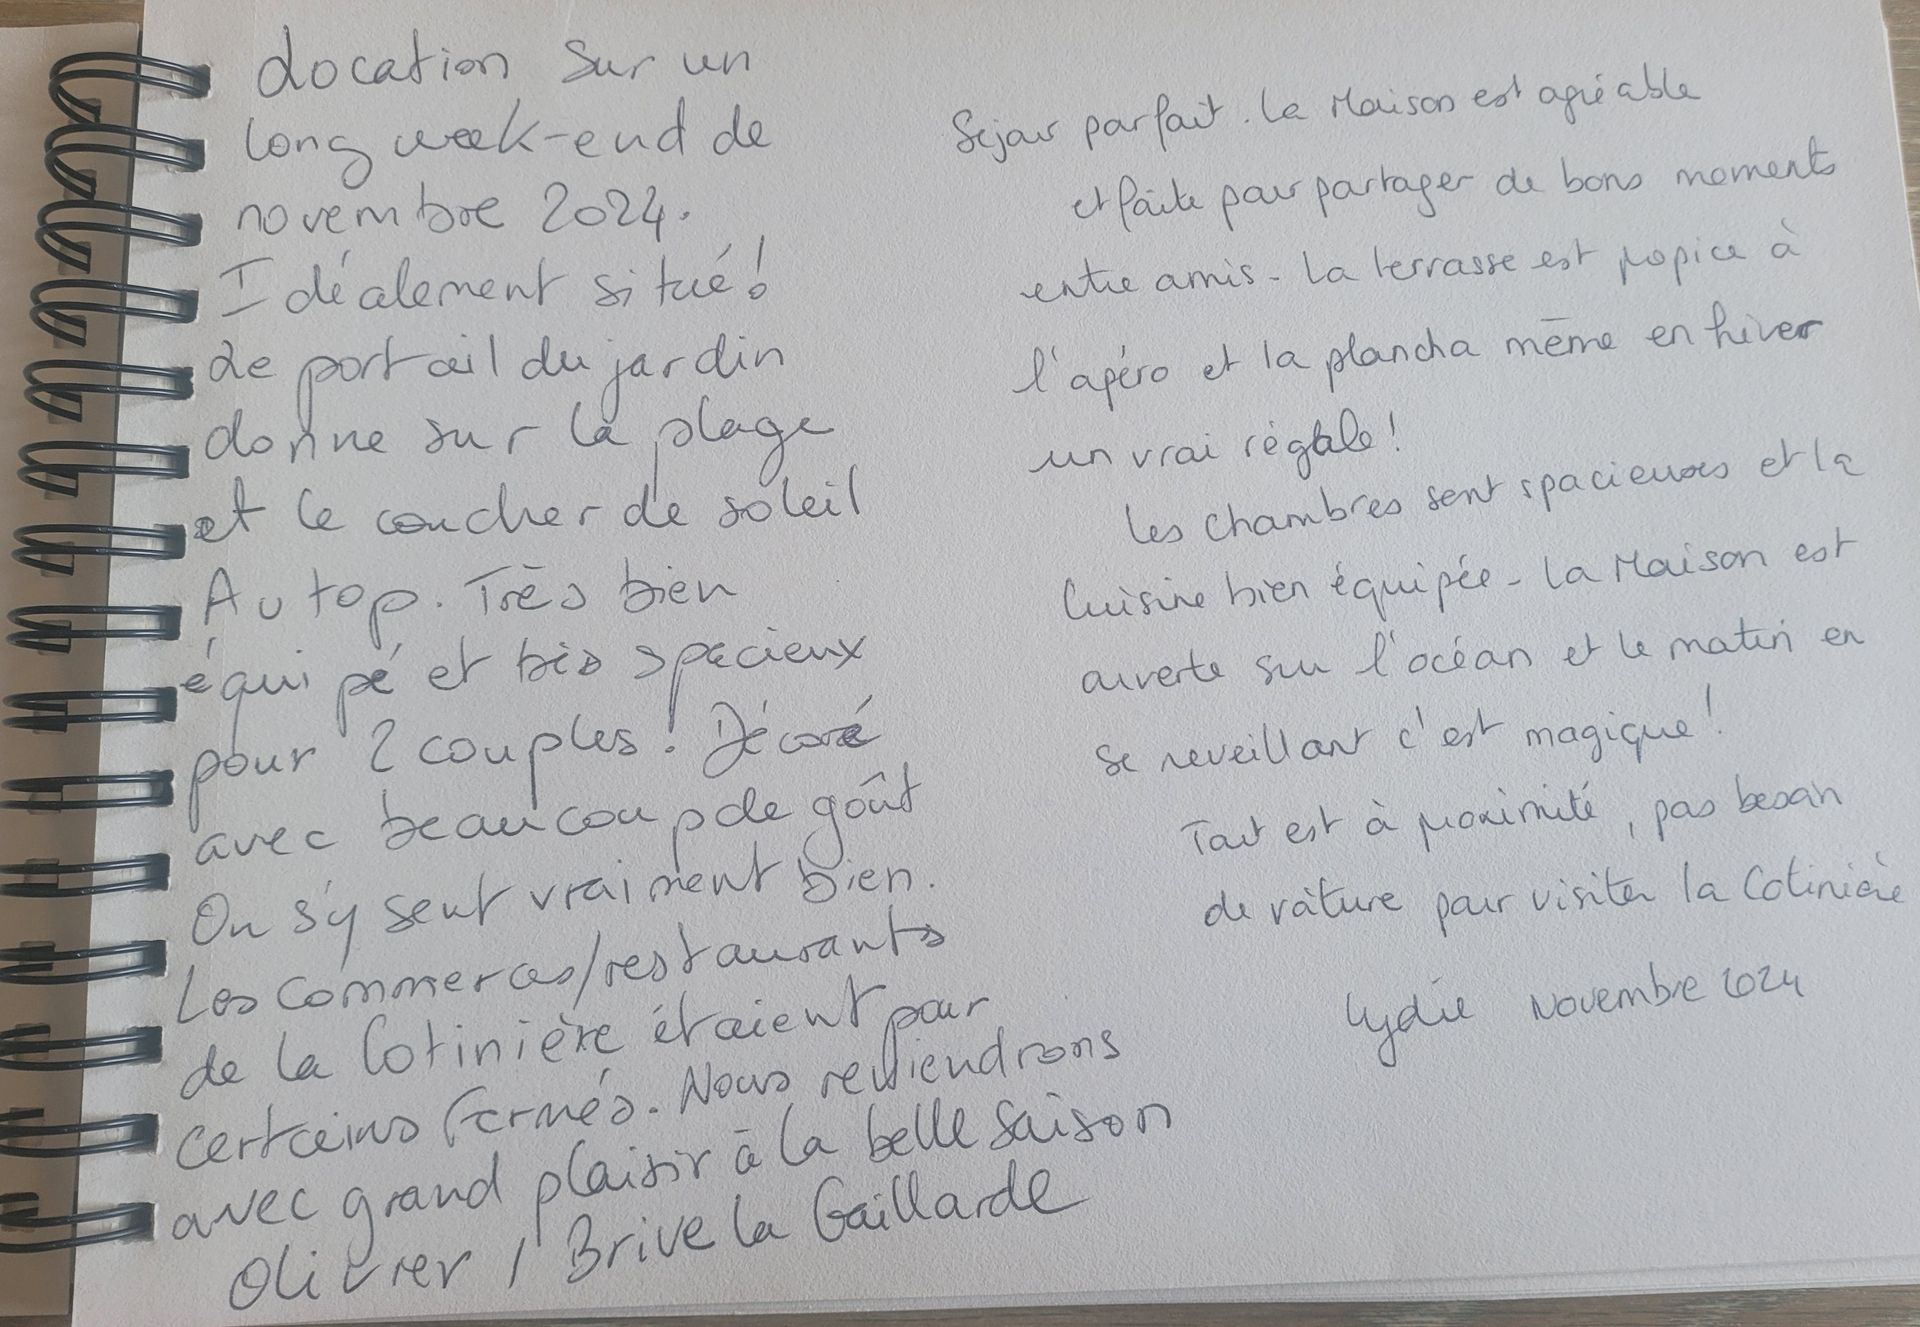 Location sur un
long week-end de
novembre 2024.
Idéalement situé!
Le portail du jardin
donne sur la plage
et le coucher de soleil
Au top. Très bien
équipé et très spacieux
pour 2 couples! Décoré
avec beaucoup de goût
On s'y sent vraiment bien.
Les commerces/restaurants
de la Cotinière étaient pour
certains fermés. Nous reviendrons
avec grand plaisir à la belle saison
Olivier / Brive la Gaillarde
Séjour parfait. La Maison est agréable
et faite pour partager de bons moments
entre amis - La terrasse est propice à
l'apéro et la plancha même en hiver
un vrai régale!
Les chambres sont spacieuses et la
Cuisine bien équipée - La Maison est
ouverte sur l'océan et le matin en
se reveillant c'est magique!
Tout est à proximité, pas besoin
de voiture pour visiter la Cotinière
Lydie Novembre 2024